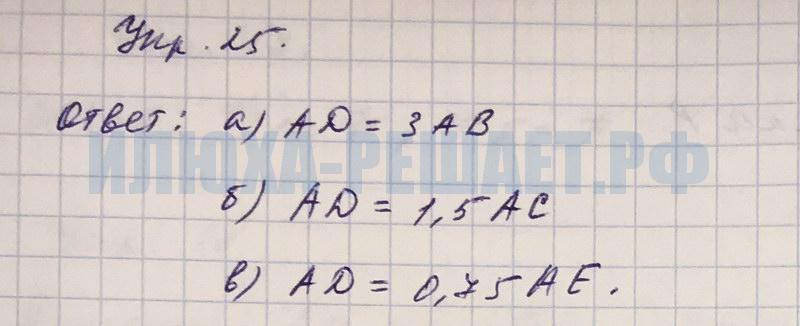 Упр. 25.
Ответ: а) AD = 3AB
ИЛЮХА-РЕШАЕТ.РФ
б) AD = 1,5AC
в) AD = 0,75AE.